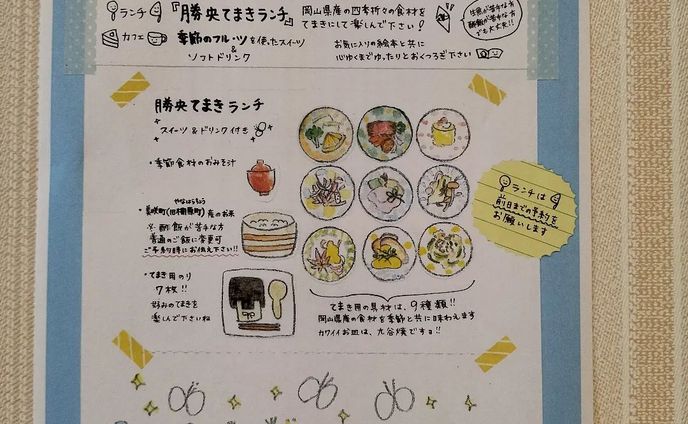 ランチ
『勝央てまきランチ』
岡山県産の四季折々の食材を
てまきにして楽しんで下さい!
生魚が苦手な方
酢飯が苦手な方
でも大丈夫!!
カフェ
季節のフルーツを使ったスイーツ
&
ソフトドリンク
お気に入りの絵本と共に
心ゆくまでゆったりとおくつろぎ下さい
勝央てまきランチ
スイーツ&ドリンク付き
・季節食材のおみそ汁
やなはらちょう
・美咲町(旧柵原町)産のお米
※酢飯が苦手な方
普通のご飯に変更可
ご予約時にお伝え下さい!!
・てまき用のり
7枚!!
好みのてまきを
楽しんで下さいね
てまき用の具材は、9種類!!
岡山県産の食材を季節と共に味わえます
カワイイお皿は、九谷焼ですョ!!
ランチは
前日までの予約を
お願いします